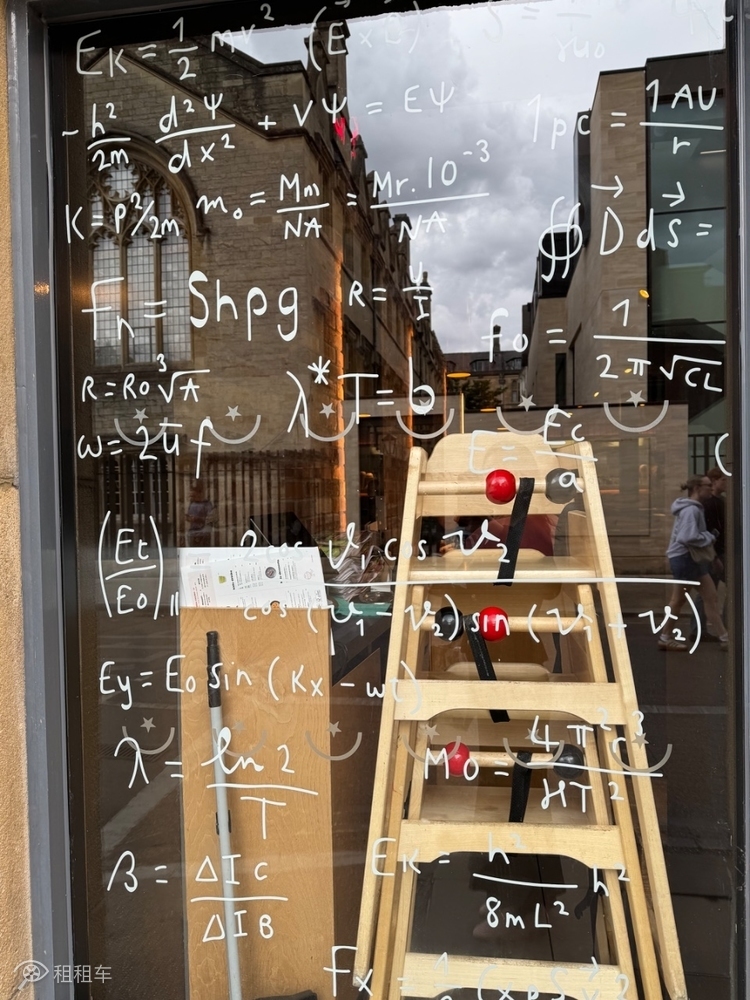 E_K = 1/2 mv² (E⃗ × B⃗)
-ħ²/2m d²Ψ/dx² + VΨ = EΨ 1pc = 1AU/r
K = P²/2m m₀ = Mm/NA = Mr.10⁻³/NA ∯ D⃗ ds⃗ =
Fn = Shpg R = U/I f₀ = 1/2π√CL
R = R₀ ³√A λ* T = b
ω = 2π f E = Ec/a (
(Et/E₀)∥ 2cos ϑ₁ cos ϑ₂ / cos (ϑ₁ - ϑ₂) sin (ϑ₁ + ϑ₂)
Ey = E₀ sin (Kx - wt)
λ = ln 2/T M₀ = 4π²r³/ℋT²
β = ΔIc/ΔIB E_K = h²/8mL² h²
Fx =
租租车